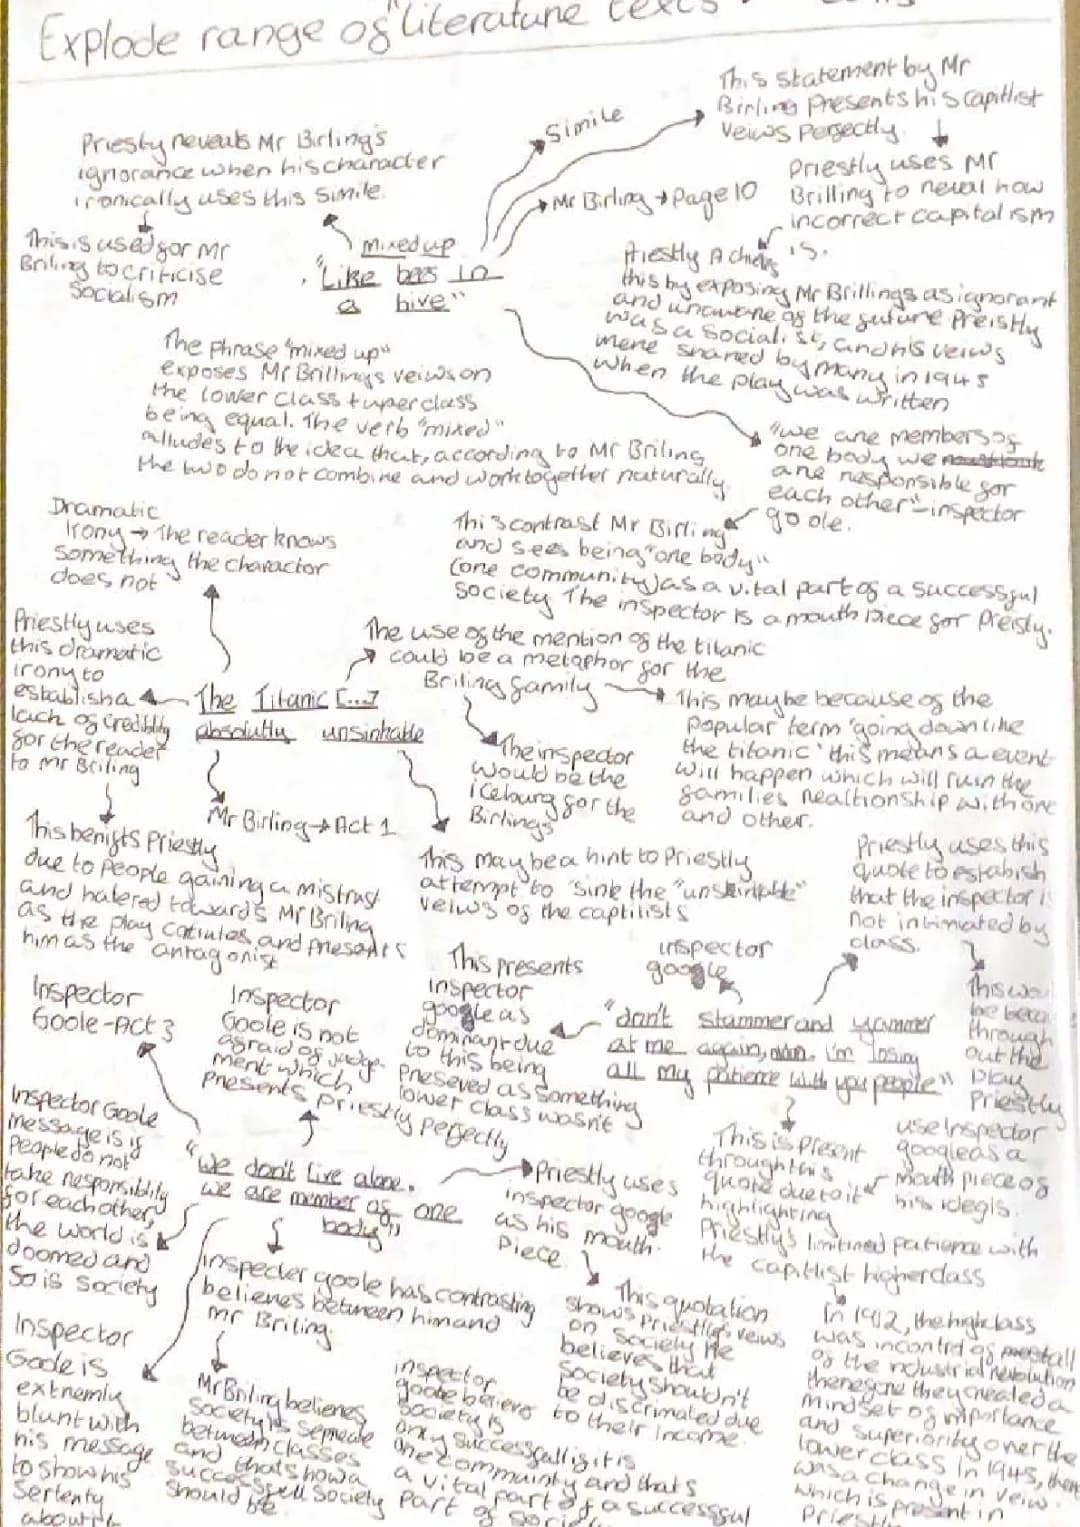 Explode range of "literature texts
This statement by Mr
Birling Presents his capitlist
veiws Perfectly.
Simile
Mr Birling → Page 10
Priestly reveals Mr Birling's
ignorance when his character
ironically uses this simile.
This is used for Mr
Briling to criticise
Socialism
Priestly uses Mr
Brilling to reveal how
incorrect capitalism
is.
mixed up
"Like bees in
a hive"
Priestly Achieves
this by exposing Mr Brillings as ignorant
and unaware of the future Preistly
was a socialist, and his veiws
were shared by many in 1945
when the play was written
The Phrase "mixed up"
exposes Mr Brillings veiws on
the lower class + uperclass
being equal. The verb "mixed"
alludes to the idea that, according to Mr Briling
the two do not combine and work together naturally.
"we are members of
one body we
are responsible for
each other" - inspector
goole.
This contrast Mr Birling
and sees being "one body"
(one community) as a vital part of a successful
society The inspector is a mouth piece for Preisty.
Dramatic
Irony → The reader knows
something the charactor
does not
Priestly uses
this dramatic
irony to
establish a
lach of credibility
for the reader
to Mr Briling
The use of the mention of the titanic
could be a metaphor for the
Briling family
The Titanic [...]
absolutly unsinkable
This maybe because of the
popular term 'going down like
the titanic' this means a event
will happen which will ruin the
families realtionship with one
and other.
The inspector
would be the
Iceburg for the
Birlings
Mr Birling → Act 1
This benifits Priestly
due to people gaining a mistrust
and hatered towards Mr Briling
as the play continues, and presents
him as the antagonist
This may be a hint to Priestly
attempt to 'sink the "unsinkable"
veiws of the captilists
Priestly uses this
quote to estabish
that the inspector is
not intimated by
class.
inspector
google
"don't stammer and yammer
at me again, man. i'm losing
all my patience with you people"
This presents
inspector
google as
dominant due
to this being
preseved as something
lower class wasn't
This
be
through
out the
play
Priestly
use Inspector
google as a
mouth piece of
his ideals.
This is Present
through this
quote due to it
highlighting
Priestly's limitined patience with
the capitlist higherclass
Inspector
Goole - Act 3
Inspector
Goole is not
afraid of judge-
ment which
presents priestly perfectly
"we don't live alone.
we are member of one
body"
Inspector Goole
message is if
People do not
take responsiblily
for each other,
the world is
doomed and
So is Society
Priestly uses
inspector google
as his mouth.
Piece.
inspecter goole has contrasting
believes between him and
mr Briling.
This quotation
shows Priestly's veiws
on Society He
believes that
Society shouldn't
be discrimated due
to their income.
In 1912, the high class
was incontrol of all
of the industrial revolution
therefore they created a
mindset of importance
and superiority over the
lower class In 1945, there
was a change in veiw.
which is present in
Priestly
Inspector
Goole is
extremly
blunt with
his message
to show his
Sertenty
about it
Mr Briling believes
society is seperate
between classes
and thats how a
successfull Society
Should be
inspector
goole believe
society is
only successfull if it is
one community and thats
a vital part of a successful
part of society